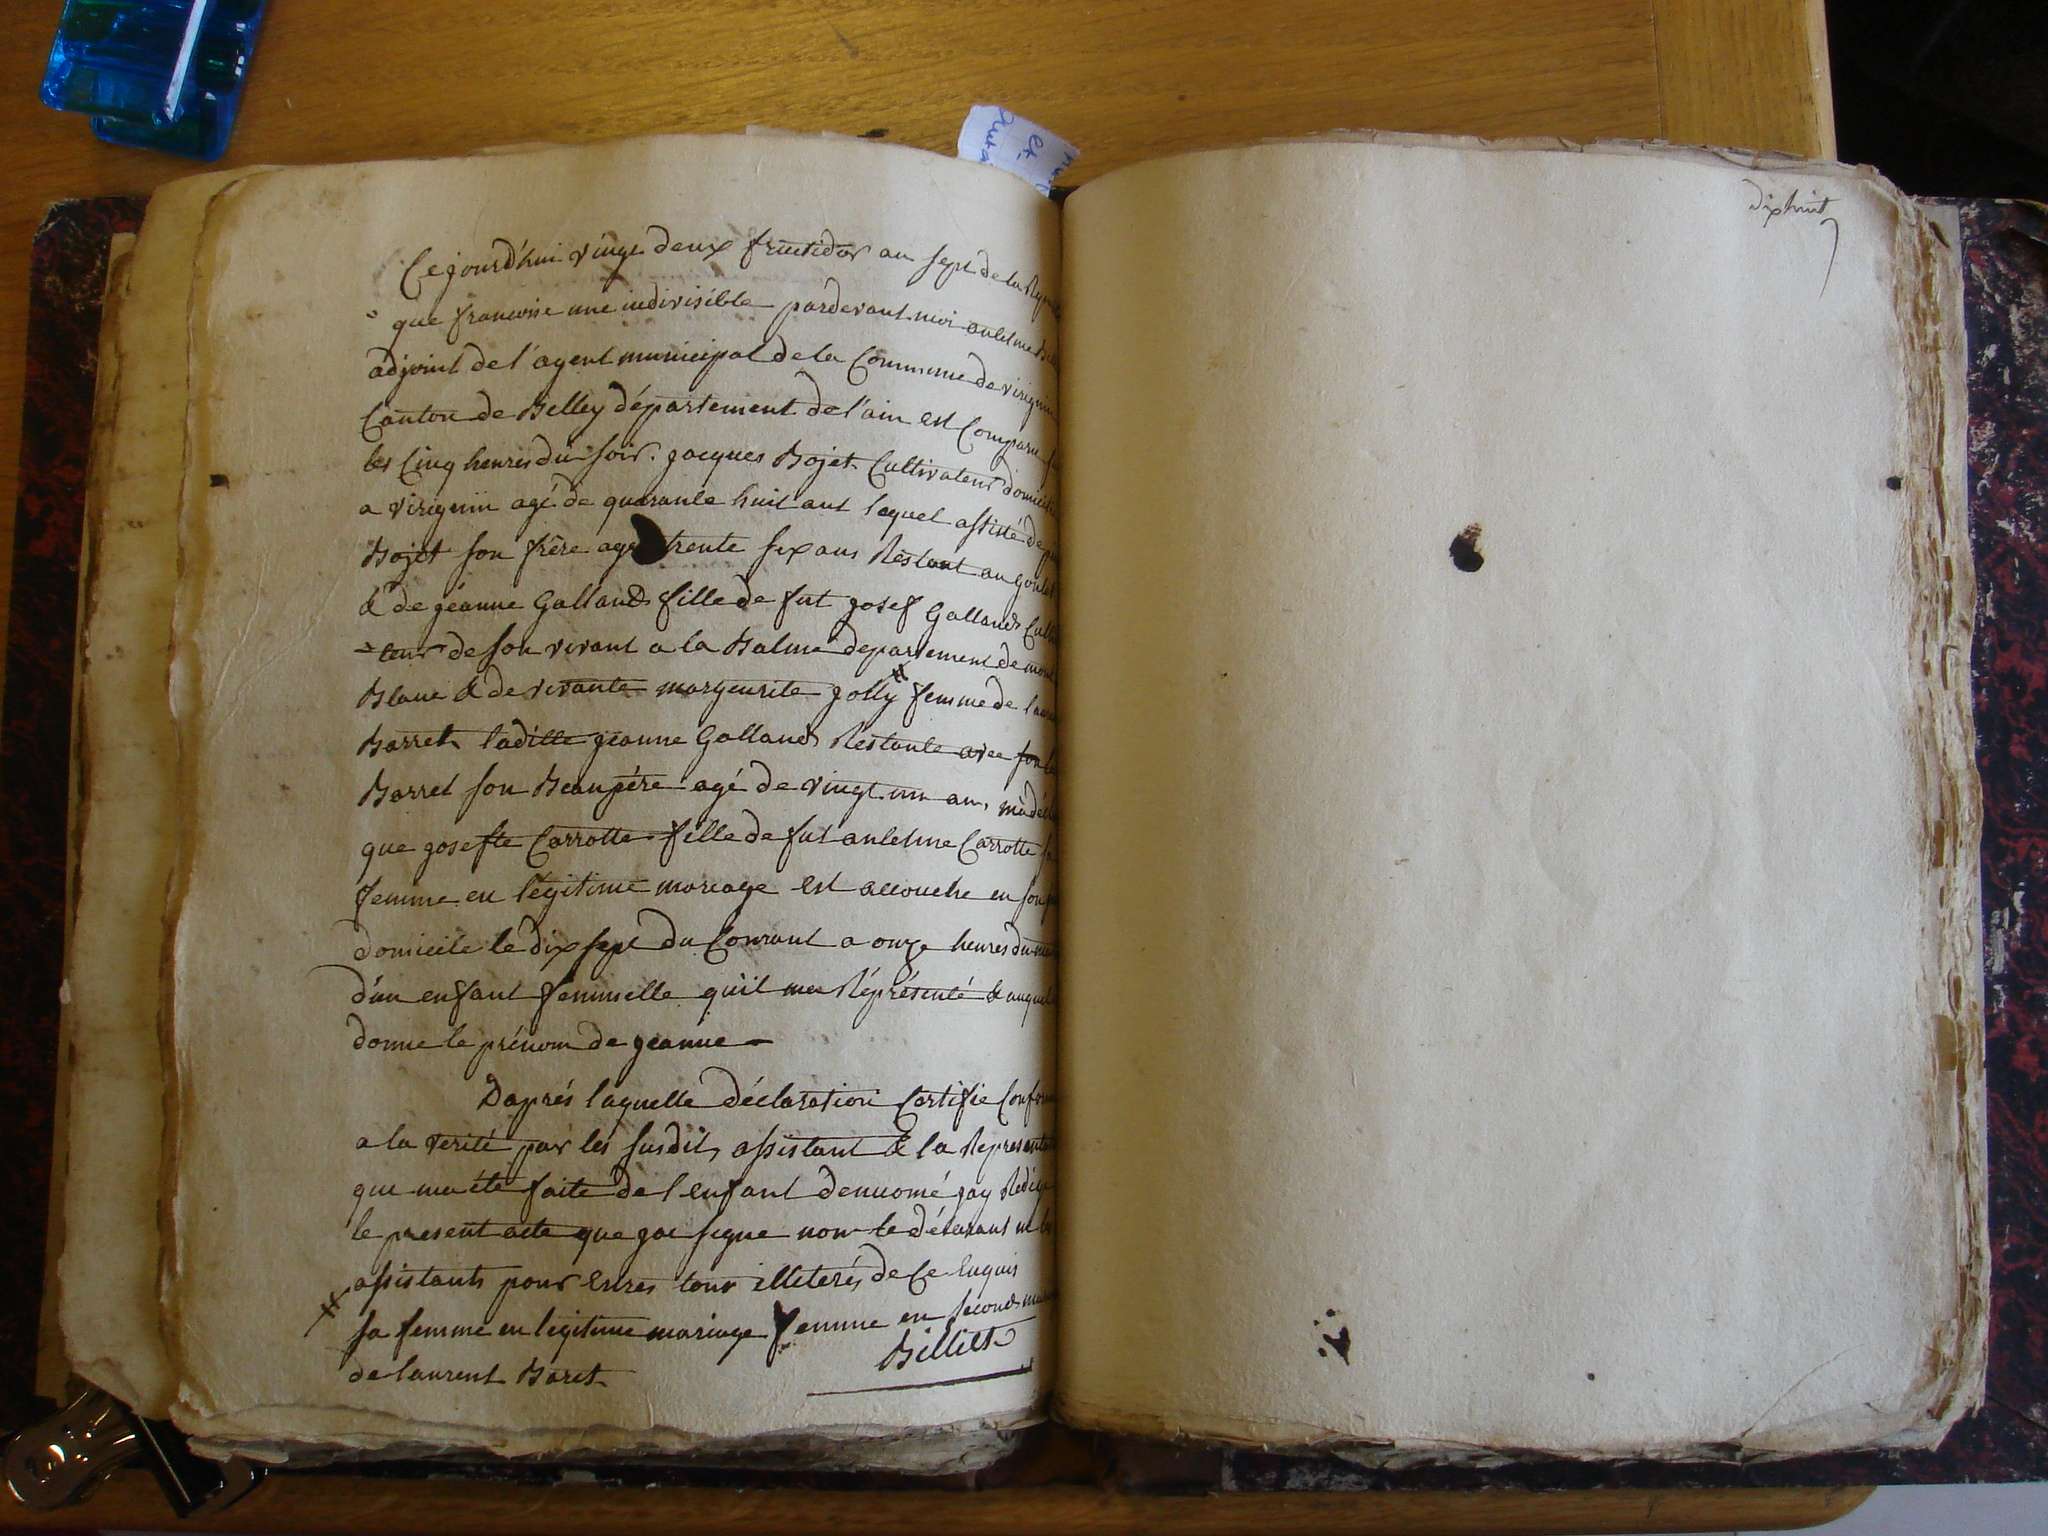 Cejourd'hui vingt deux fructidor an sept de la Repu
que francoise une indivisible pardevant moi antelme
adjoint de l'agent municipal de la Commune de virignin
Canton de Belley département de l'ain est Comparu
les Cinq heures du soir. jacques Bojet Cultivateur domicilie
a virignin agé de quarante huit ans laquel assisté de
Bojet son frère agé trente six ans Réstant au
& de jéanne Galland fille de fut josef Galland Culti
-teur de son vivant a la Balme departement de mont
Blanc & de vivante margeurite jolly # femme de
Barret ladille jeanne Galland Réstante avec
Barret son Beaupére agé de vingt un an, madé
que josefte Carrotte fille de fut antelme Carrotte sa
femme en légitime mariage est accouche en son
domicile le dix sept du Courant a onze heures du
d'un enfant feminelle qu'il ma Réprésenté & auquel
donne le prénom de jeanne —
D'aprés laquelle déclaration Certifie Conforme
a la verité par les susdit, assistant & la Representa
que ma été faite de l'enfant denuomé jay Rédige
le present acte que jai signe non le déclarant ni les
assistants pour Entres tour illeterés de Ce Enquis
# sa femme en légitime mariage femme en second
de laurent Baret
Billiet
dix huit
et